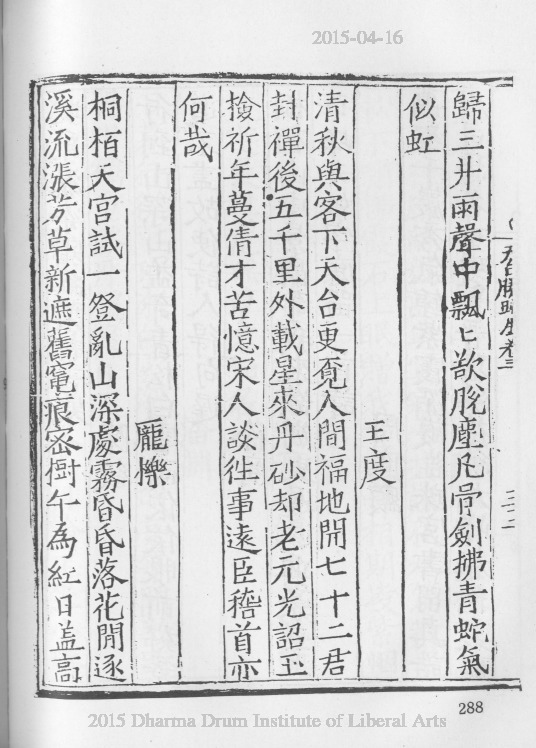 2015-04-16
天台勝蹟錄卷三
歸三井雨聲中飄〻欲脫塵凡骨劍拂青蛇氣
似虹
王度
清秋與客下天台更覓人間福地開七十二君
封禪後五千里外載星來丹砂却老元光詔玉
撿祈年蔓倩才苦憶宋人談往事遠臣稽首亦
何哉
龎㯕
桐栢天宮試一登亂山深處霧昏昏落花開逐
溪流漲芳草新遮舊竃痕宻樹午為紅日盖高
288
2015 Dharma Drum Institute of Liberal Arts